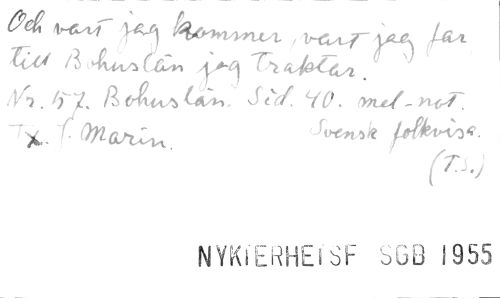 Och vart jag kommer, vart jag far
till Bohuslän jag traktar.
Nr. 57. Bohuslän. Sid. 40. mel-not.
Tx. J. Marin. Svensk folkvisa.
(T.S.)
NYKTERHETSF SGB 1955